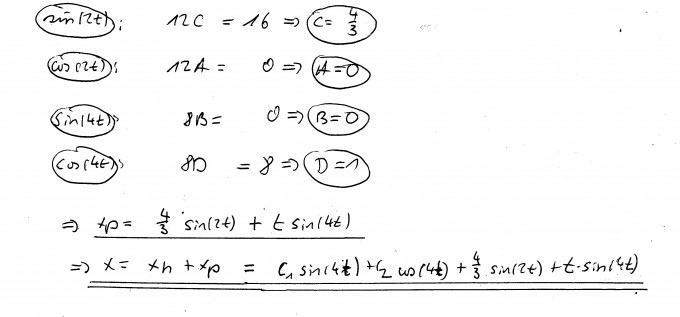 sin(2t): 12C = 16 ⇒ C = 4/3
cos(2t): 12A = 0 ⇒ A=0
sin(4t): 8B = 0 ⇒ B=0
cos(4t): 8D = 8 ⇒ D=1
⇒ xp = 4/3 sin(2t) + t sin(4t)
⇒ x = xh + xp = C₁ sin(4t) + C₂ cos(4t) + 4/3 sin(2t) + t·sin(4t)